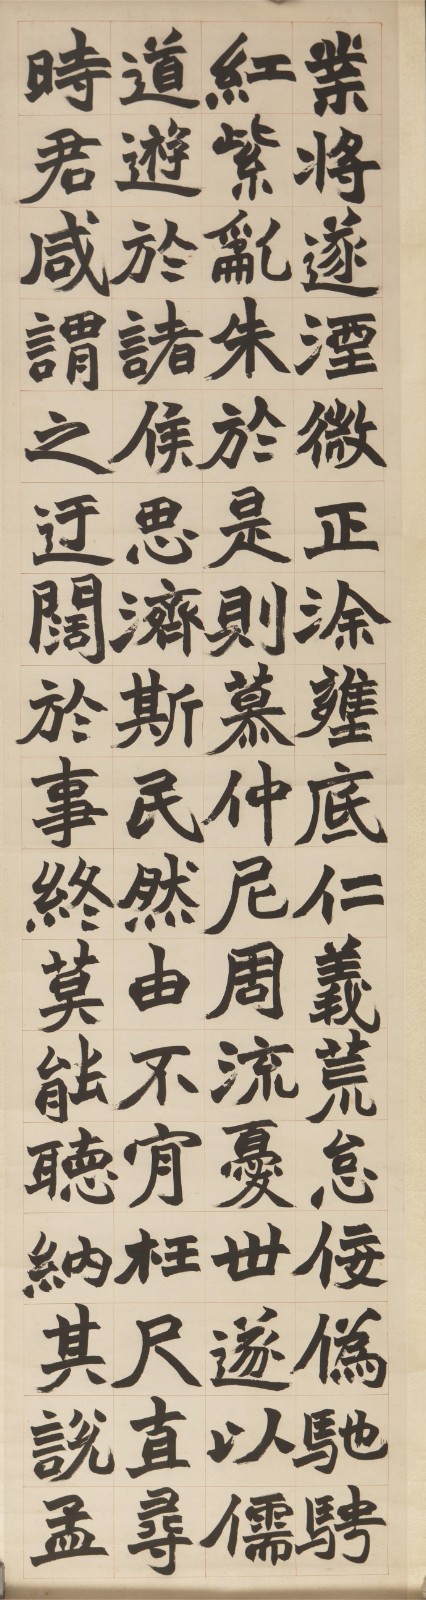 業將遂湮微正涂壅底仁義荒怠佞偽馳騁
紅紫亂朱於是則慕仲尼周流憂世遂以儒
道遊於諸侯思濟斯民然由不肯枉尺直尋
時君咸謂之迂闊於事終莫能聽納其說孟